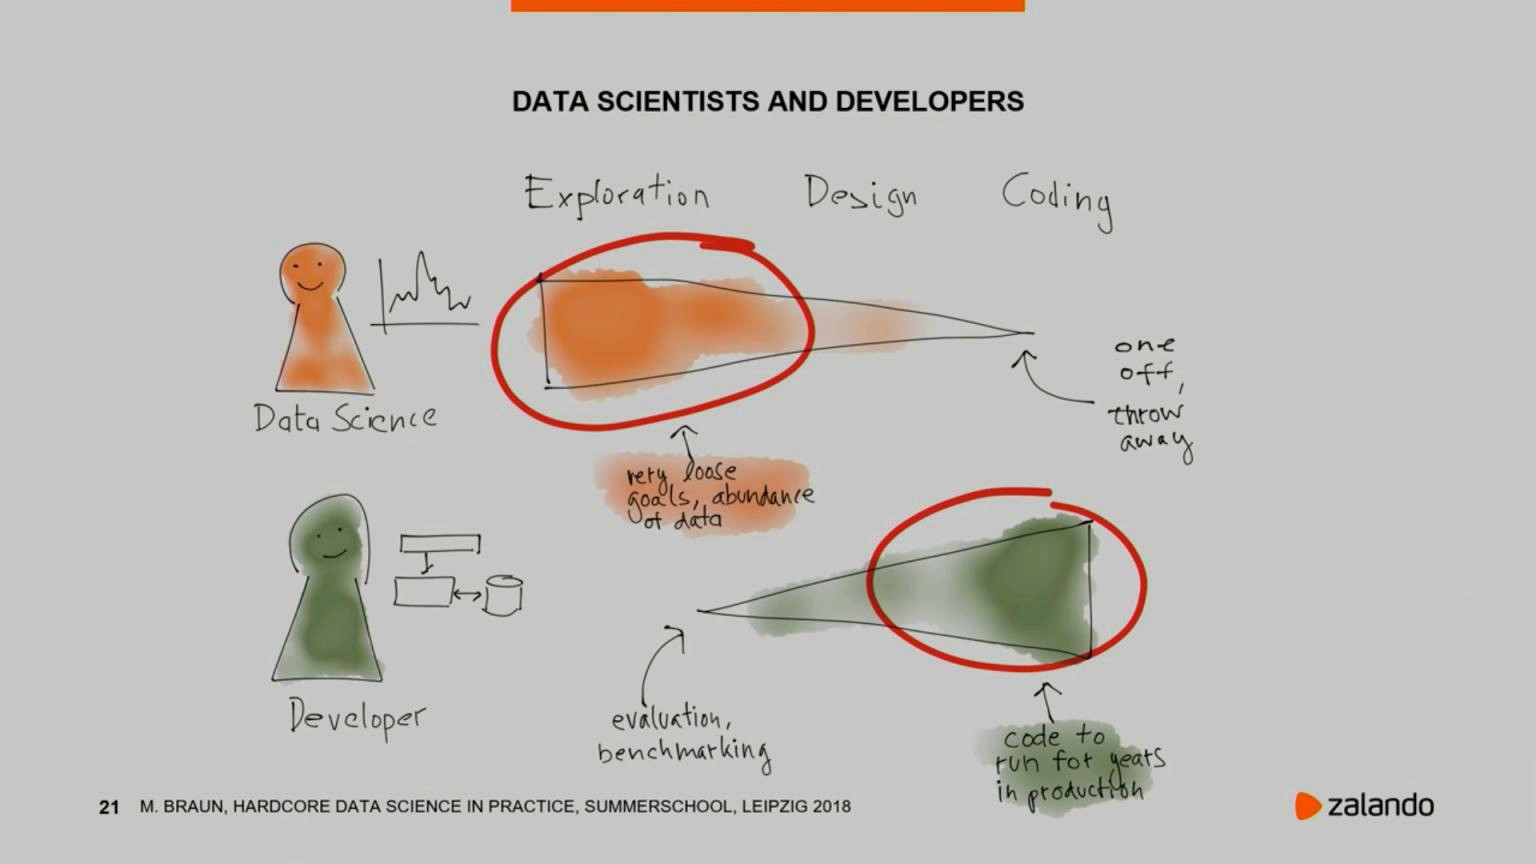 DATA SCIENTISTS AND DEVELOPERS
Exploration Design Coding
Data Science
one
off,
throw
away
very loose
goals, abundance
of data
Developer
evaluation,
benchmarking
code to
run for years
in production
21 M. BRAUN, HARDCORE DATA SCIENCE IN PRACTICE, SUMMERSCHOOL, LEIPZIG 2018
zalando